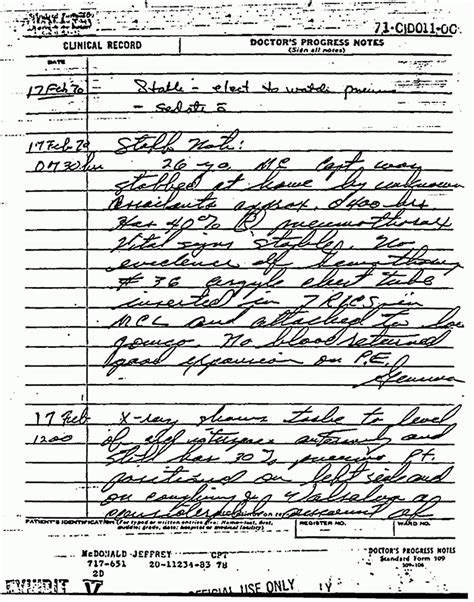 71-CID011-00
CLINICAL RECORD
DOCTOR'S PROGRESS NOTES
(Sign all notes)
DATE
17 Feb 70 - Stable - elect to watch
- sedate
17 Feb 70 Staff Note:
0730 hrs 26 yo MC Capt was
stabbed at home by unknown
assailants approx. 0400 hrs
Has 40% (R) pneumothorax
Vital signs stable. No
evidence of
# 36 argyle chest tube
inserted in 7 RICS in
MCL and attached to low
gomco. No blood returned
good expansion on P.E.
17 Feb X-ray shows tube to level
1200 of anteriorly and
still has 30% Pt.
positioned on left side and
on coughing
amount of
PATIENT'S IDENTIFICATION (For typed or written entries give: Name—last, first, middle; grade; date; hospital or medical facility)
REGISTER NO.
WARD NO.
MCDONALD JEFFREY CPT
717-651 20-11234-83 78
2D
DOCTOR'S PROGRESS NOTES
Standard Form 509
509-106
EXHIBIT V
OFFICIAL USE ONLY